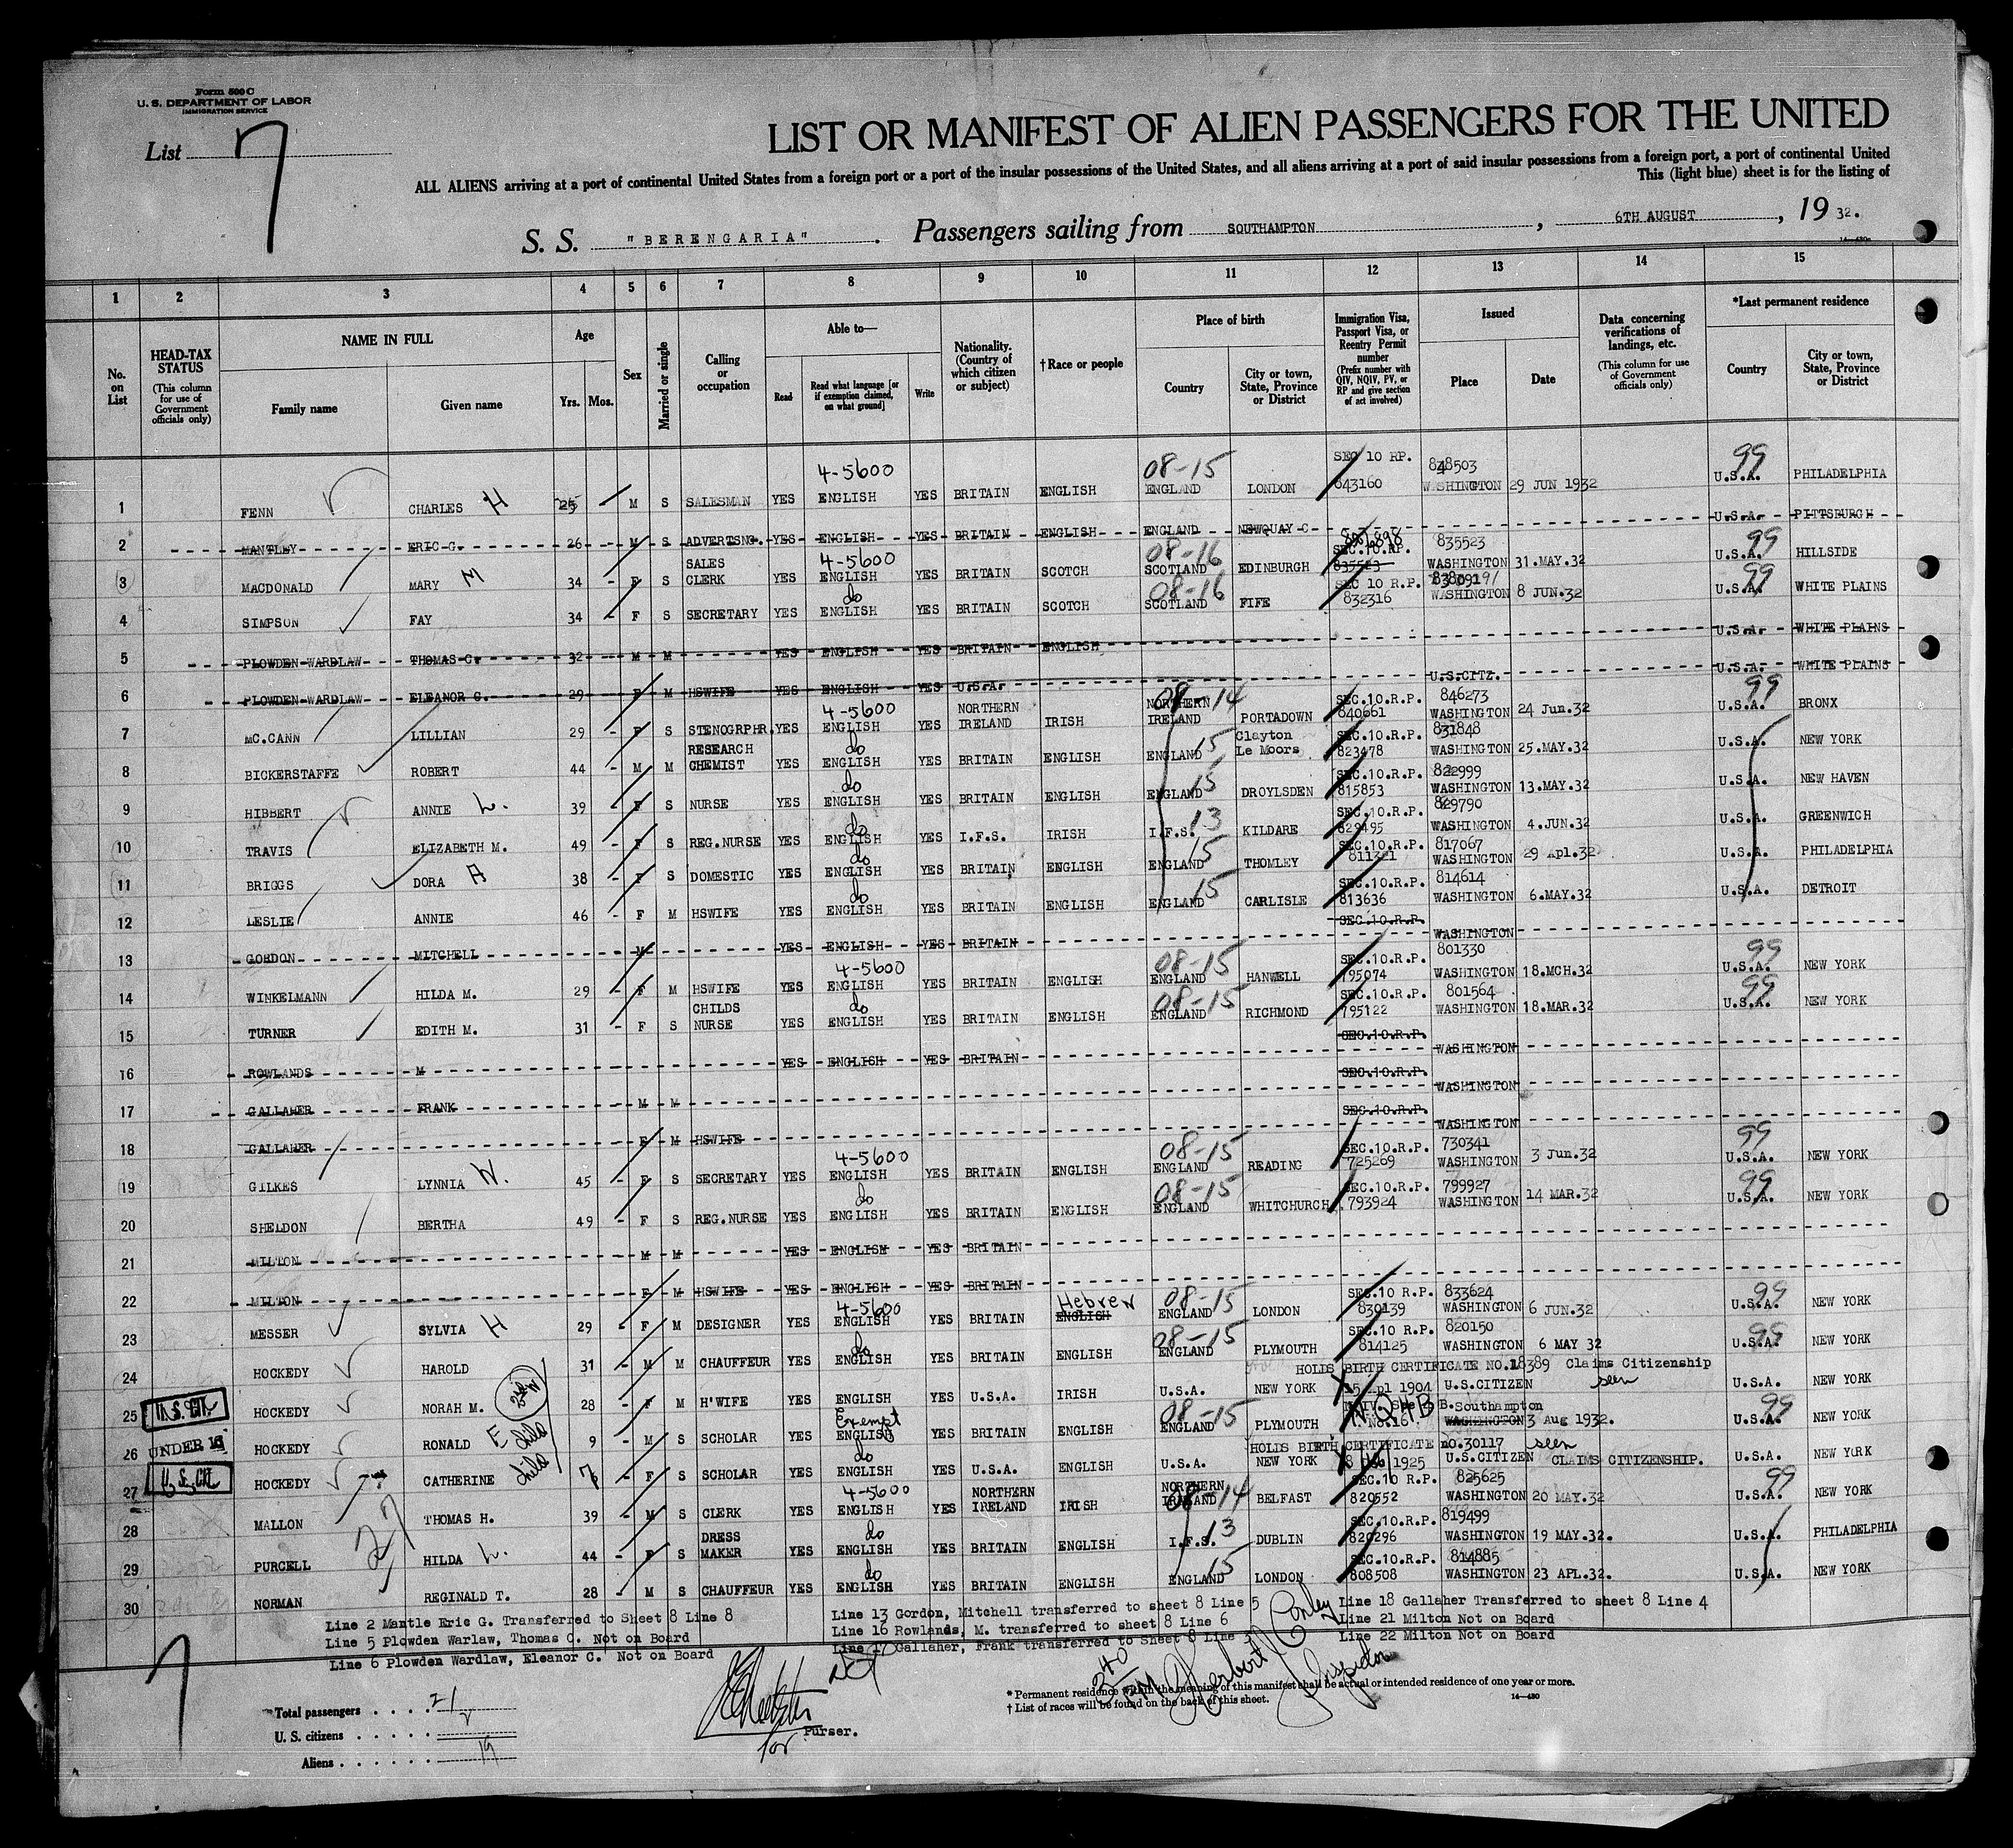 Form 500 C
U. S. DEPARTMENT OF LABOR
IMMIGRATION SERVICE
List 7
LIST OR MANIFEST OF ALIEN PASSENGERS FOR THE UNITED
ALL ALIENS arriving at a port of continental United States from a foreign port or a port of the insular possessions of the United States, and all aliens arriving at a port of said insular possessions from a foreign port, a port of continental United
This (light blue) sheet is for the listing of
S. S. "BERENGARIA" . Passengers sailing from SOUTHAMPTON , 6TH AUGUST , 19 32.
1 2 3 4 5 6 7 8 9 10 11 12 13 14 15
No. on List
HEAD-TAX STATUS (This column for use of Government officials only)
NAME IN FULL Family name Given name
Age Yrs. Mos.
Sex
Married or single
Calling or occupation
Able to— Read Read what language [or if exemption claimed, on what ground] Write
Nationality. (Country of which citizen or subject)
† Race or people
Place of birth Country City or town, State, Province or District
Immigration Visa, Passport Visa, or Reentry Permit number (Prefix number with QIV, NQIV, PV, or RP and give section of act involved)
Issued Place Date
Data concerning verifications of landings, etc. (This column for use of Government officials only)
*Last permanent residence Country City or town, State, Province or District
1 FENN CHARLES H 25 - M S SALESMAN YES 4-5600 ENGLISH YES BRITAIN ENGLISH 08-15 ENGLAND LONDON SEC 10 RP. 843160 848503 WASHINGTON 29 JUN 1932 99 U.S.A. PHILADELPHIA
2 MANTLEY ERIC G. 26 - M S ADVERTSNG. YES ENGLISH YES BRITAIN ENGLISH ENGLAND NEWQUAY C U.S.A. PITTSBURGH
3 MACDONALD MARY M 34 - F S SALES CLERK YES 4-5600 ENGLISH YES BRITAIN SCOTCH 08-16 SCOTLAND EDINBURGH SEC.10.RP. 835523 835523 WASHINGTON 31.MAY.32 99 U.S.A. HILLSIDE
4 SIMPSON FAY 34 - F S SECRETARY YES do ENGLISH YES BRITAIN SCOTCH 08-16 SCOTLAND FIFE SEC 10 R.P. 832316 WASHINGTON 8 JUN.32 99 U.S.A. WHITE PLAINS
5 PLOWDEN WARDLAW THOMAS C. 32 - M M YES ENGLISH YES BRITAIN ENGLISH U.S.A. WHITE PLAINS
6 PLOWDEN-WARDLAW ELEANOR G. 29 - F M HSWIFE YES ENGLISH YES U.S.A. U.S.CITZ. U.S.A. WHITE PLAINS
7 MC.CANN LILLIAN 29 - F S STENOGRPHR. YES 4-5600 ENGLISH YES NORTHERN IRELAND IRISH 08-14 NORTHERN IRELAND PORTADOWN SEC.10.R.P. 840661 846273 WASHINGTON 24 Jun.32 99 U.S.A. BRONX
8 BICKERSTAFFE ROBERT 44 - M M RESEARCH CHEMIST YES do ENGLISH YES BRITAIN ENGLISH ENGLAND 15 Clayton Le Moors SEC.10.R.P. 823478 831848 WASHINGTON 25.MAY.32 U.S.A. NEW YORK
9 HIBBERT ANNIE L. 39 - F S NURSE YES do ENGLISH YES BRITAIN ENGLISH ENGLAND 15 DROYLSDEN SEC.10.R.P. 815853 822999 WASHINGTON 13.MAY.32 U.S.A. NEW HAVEN
10 TRAVIS ELIZABETH M. 49 - F S REG.NURSE YES do ENGLISH YES I.F.S. IRISH I.F.S. 13 KILDARE SEC.10.R.P. 829495 829790 WASHINGTON 4.JUN.32 U.S.A. GREENWICH
11 BRIGGS DORA A 38 - F S DOMESTIC YES do ENGLISH YES BRITAIN ENGLISH ENGLAND 15 THOMLEY SEC.10.R.P. 811321 817067 WASHINGTON 29 Apl.32 U.S.A. PHILADELPHIA
12 LESLIE ANNIE 46 - F M HSWIFE YES do ENGLISH YES BRITAIN ENGLISH ENGLAND 15 CARLISLE SEC.10.R.P. 813636 814614 WASHINGTON 6.MAY.32 U.S.A. DETROIT
13 GORDON MITCHELL M YES ENGLISH YES BRITAIN SEC.10.R.P. WASHINGTON
14 WINKELMANN HILDA M. 29 - F M HSWIFE YES 4-5600 ENGLISH YES BRITAIN ENGLISH 08-15 ENGLAND HANWELL SEC.10.R.P. 795074 801330 WASHINGTON 18.MCH.32 99 U.S.A. NEW YORK
15 TURNER EDITH M. 31 - F S CHILDS NURSE YES do ENGLISH YES BRITAIN ENGLISH 08-15 ENGLAND RICHMOND SEC.10.R.P. 795122 801564 WASHINGTON 18.MAR.32 99 U.S.A. NEW YORK
16 ROWLANDS M YES ENGLISH YES BRITAIN SEC.10.R.P. WASHINGTON
17 GALLAHER FRANK M M SEC.10.R.P. WASHINGTON
18 GALLAHER F M HSWIFE SEC.10.R.P. WASHINGTON
19 GILKES LYNNIA W. 45 - F S SECRETARY YES 4-5600 ENGLISH YES BRITAIN ENGLISH 08-15 ENGLAND READING SEC.10.R.P. 725269 730341 WASHINGTON 3 Jun.32 99 U.S.A. NEW YORK
20 SHELDON BERTHA 49 - F S REG.NURSE YES do ENGLISH YES BRITAIN ENGLISH 08-15 ENGLAND WHITCHURCH SEC.10.R.P. 793924 799927 WASHINGTON 14 MAR.32 99 U.S.A. NEW YORK
21 MILTON M M YES ENGLISH YES BRITAIN
22 MILTON F M HSWIFE YES ENGLISH YES BRITAIN
23 MESSER SYLVIA H 29 - F M DESIGNER YES 4-5600 ENGLISH YES BRITAIN Hebrew ENGLISH 08-15 ENGLAND LONDON SEC.10 R.P. 830139 833624 WASHINGTON 6 JUN.32 99 U.S.A. NEW YORK
24 HOCKEDY HAROLD 31 - M M CHAUFFEUR YES do ENGLISH YES BRITAIN ENGLISH 08-15 ENGLAND PLYMOUTH SEC.10 R.P. 814125 820150 WASHINGTON 6 MAY 32 99 U.S.A. NEW YORK
HOLDS BIRTH CERTIFICATE NO.18389 Claims Citizenship seen
25 U.S. CIT. HOCKEDY NORAH M. 28 - F M H'WIFE YES ENGLISH YES U.S.A. IRISH U.S.A. NEW YORK 5 Apl 1904 U.S.CITIZEN U.S.A. NEW YORK
26 UNDER 16 HOCKEDY RONALD E child 9 - M S SCHOLAR YES Exempt ENGLISH YES BRITAIN ENGLISH 08-15 ENGLAND PLYMOUTH No.16 Southampton WASHINGTON 3 Aug 1932. 99 U.S.A. NEW YORK
HOLDS BIRTH CERTIFICATE no.30117 seen
27 U.S. CIT. HOCKEDY CATHERINE child - F S SCHOLAR YES do ENGLISH YES U.S.A. ENGLISH U.S.A. NEW YORK 1925 U.S.CITIZEN CLAIMS CITIZENSHIP. U.S.A. NEW YORK
28 MALLON THOMAS H. 39 - M S CLERK YES 4-5600 ENGLISH YES NORTHERN IRELAND IRISH 08-14 NORTHERN IRELAND BELFAST SEC.10 R.P. 820552 825625 WASHINGTON 20 MAY.32 99 U.S.A. NEW YORK
29 PURCELL HILDA L. 44 - F S DRESS MAKER YES do ENGLISH YES BRITAIN ENGLISH I.F.S. 13 DUBLIN SEC.10.R.P. 820296 819499 WASHINGTON 19 MAY.32. U.S.A. PHILADELPHIA
30 NORMAN REGINALD T. 28 - M S CHAUFFEUR YES do ENGLISH YES BRITAIN ENGLISH ENGLAND 15 LONDON SEC.10.R.P. 808508 814885 WASHINGTON 23 APL.32. U.S.A. NEW YORK
27
Line 2 Mantle Eric G. Transferred to Sheet 8 Line 8
Line 5 Plowden Warlaw, Thomas C. Not on Board
Line 6 Plowden Wardlaw, Eleanor C. Not on Board
Line 13 Gordon, Mitchell transferred to sheet 8 Line 5
Line 16 Rowlands, M. transferred to sheet 8 Line 6
Line 17 Gallaher, Frank transferred to Sheet 8 Line 3
Line 18 Gallaher Transferred to sheet 8 Line 4
Line 21 Milton Not on Board
Line 22 Milton Not on Board
7
Total passengers . . . . 21
U. S. citizens . . . . . 2
Aliens . . . . . . 19
for Purser.
Herbert J Conley
Inspector
240 PM
* Permanent residence within the meaning of this manifest shall be actual or intended residence of one year or more.
† List of races will be found on the back of this sheet.
14—430